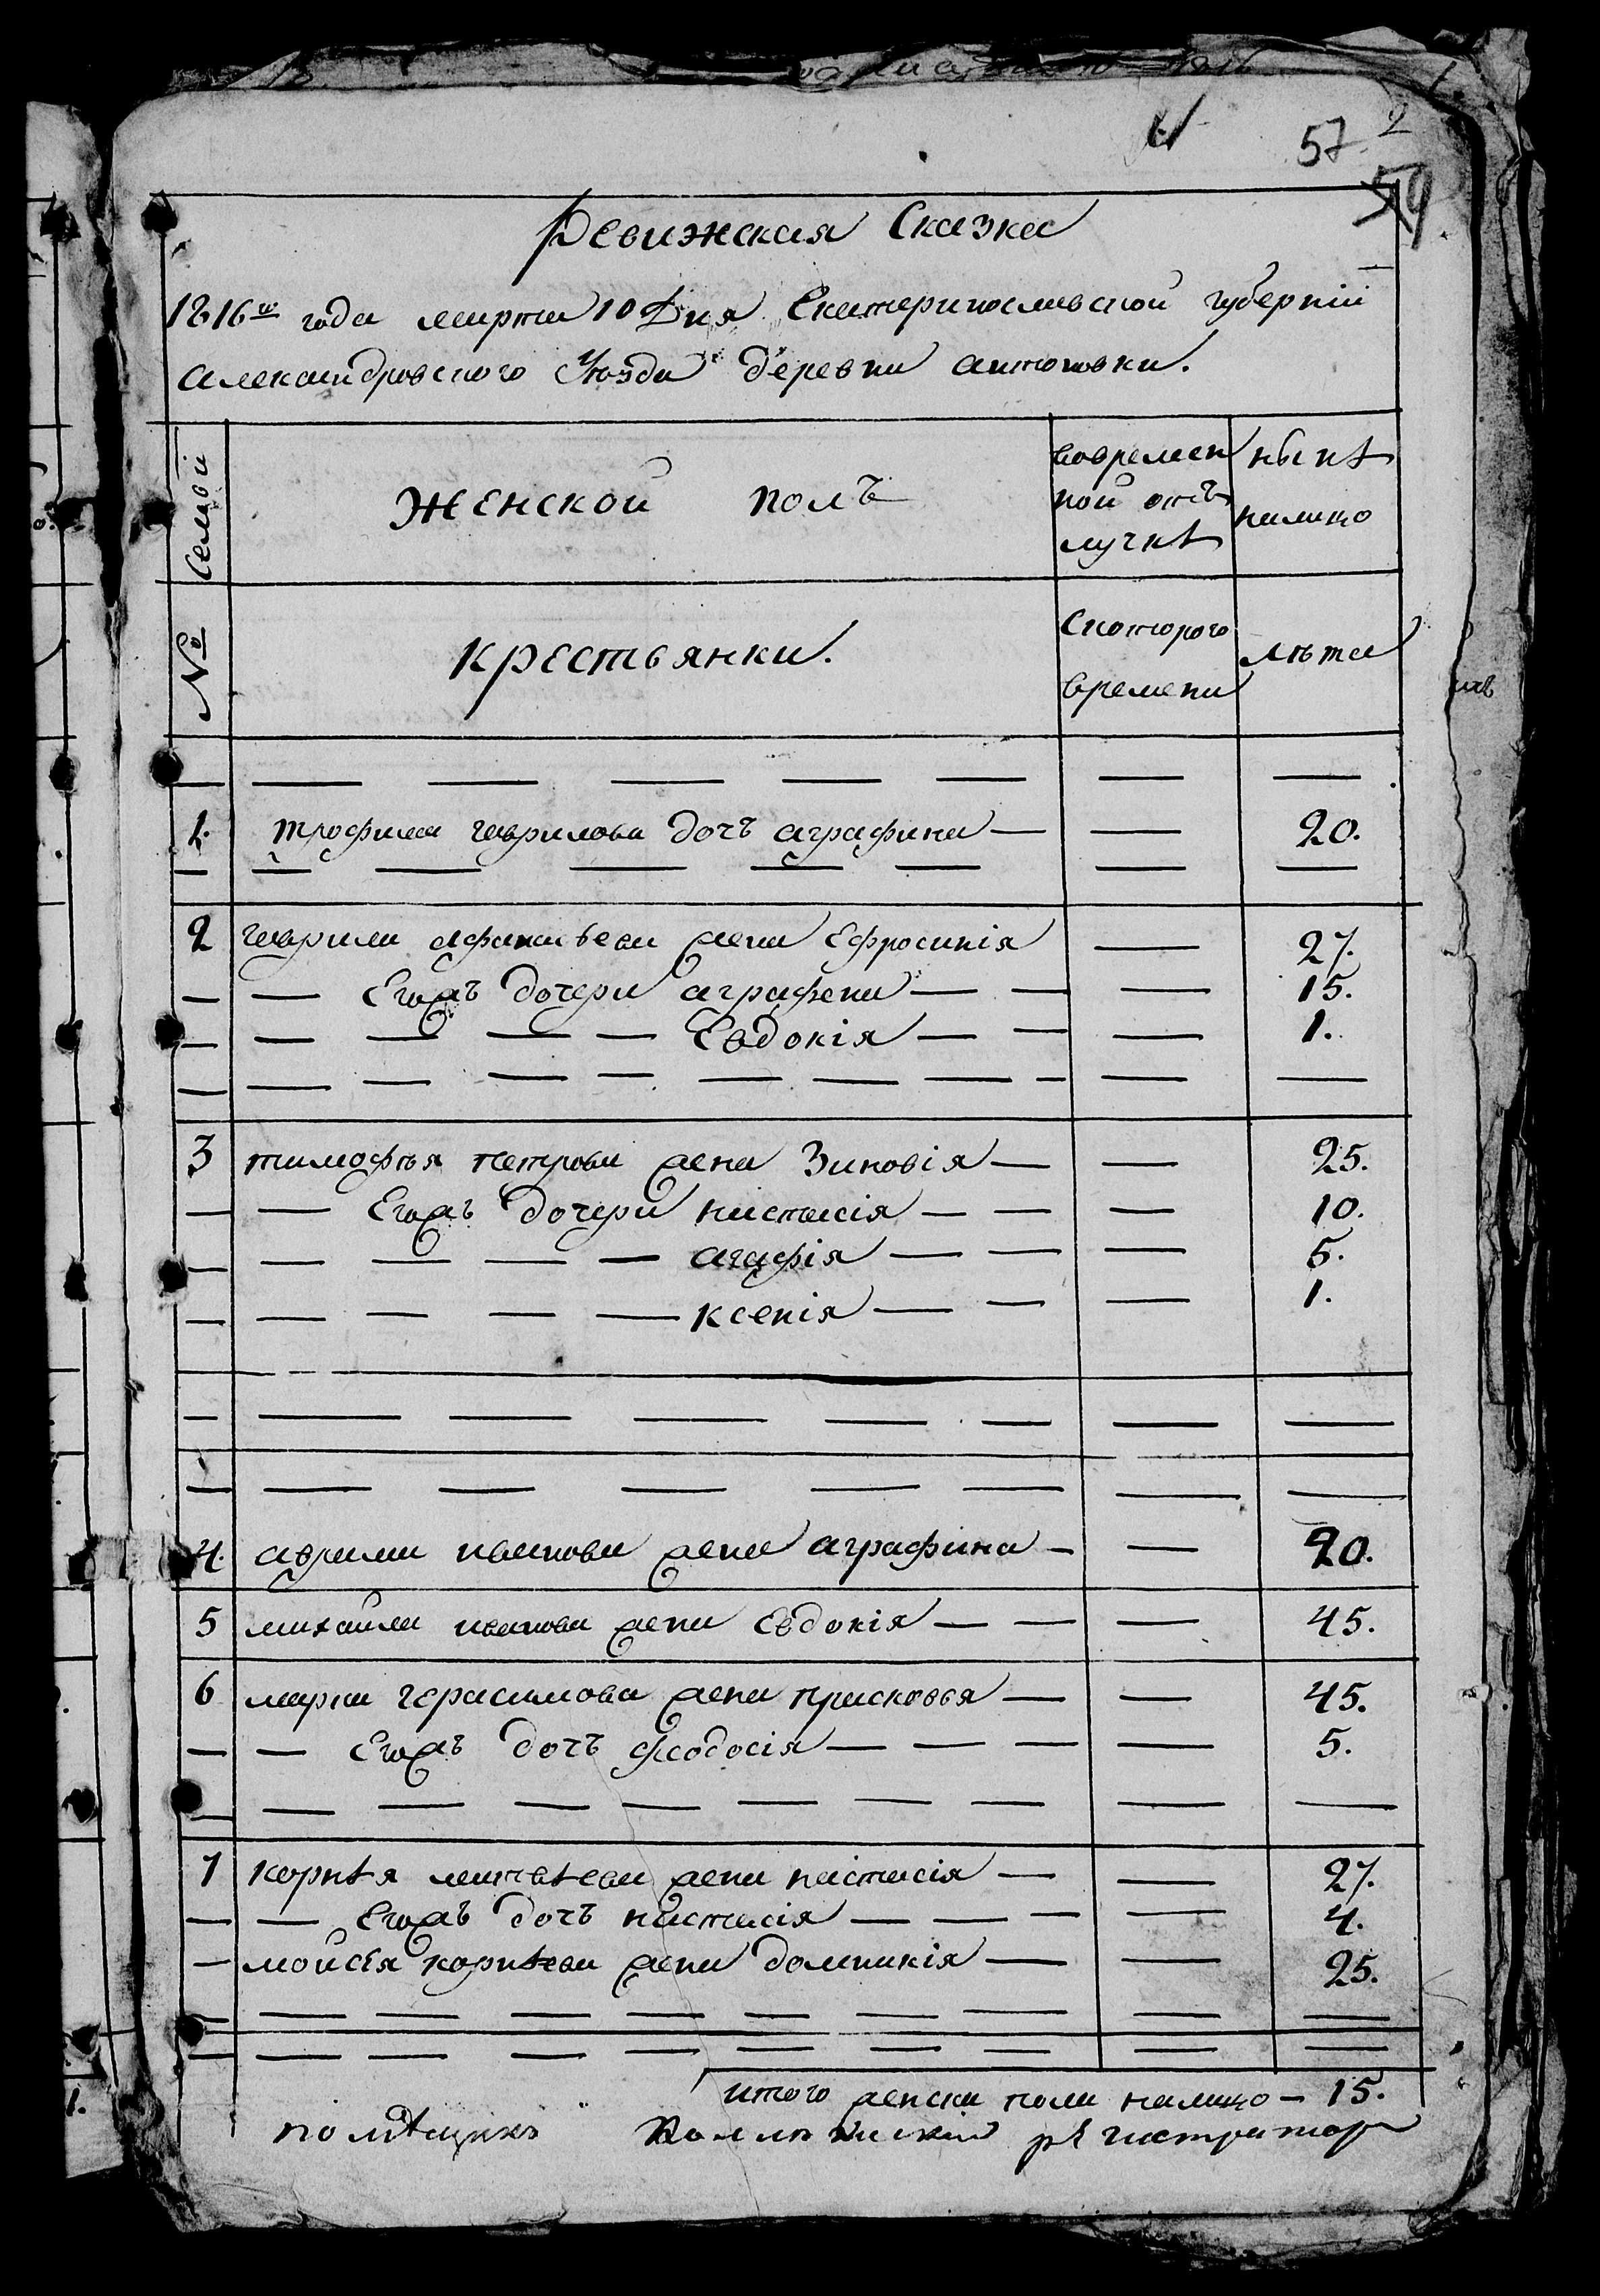 57. 2
59
Ревижская Сказка
1816го года марта 10 Дня Екатеринославской губерніи
александровского Уѣзда деревни антоновки.
№ семей
женской полъ
вовремен
ной отъ
лучкѣ
нынѣ
налицо
крестьянки.
Скоторого
времени
лѣта
1. трофима гаврилова дочъ аграфина — — 20.
2 гаврилы афанасьева жена Ефросинія — 27.
— — Егожъ дочери аграфена — — — 15.
— — — — — Евдокія — — — 1.
3 тимофѣя петрова жена Зиновія — — 25.
— — Егожъ дочери настасія — — — 10.
— — — — — агафія — — — 5.
— — — — — ксенія — — — 1.
4. иванова жена аграфина — — 20.
5 михаила иванова жена Евдокія — — — 45.
6 марка герасимова жена прасковья — — 45.
— — Егожъ дочъ феодосія — — — — 5.
7 корнѣя матвѣева жена настасія — — 27.
— — Егожъ дочъ настасія — — — — 4.
— мойсѣя корнѣева жена домникія — — 25.
итого женска пола налицо — 15.
помѣщикъ регистратор